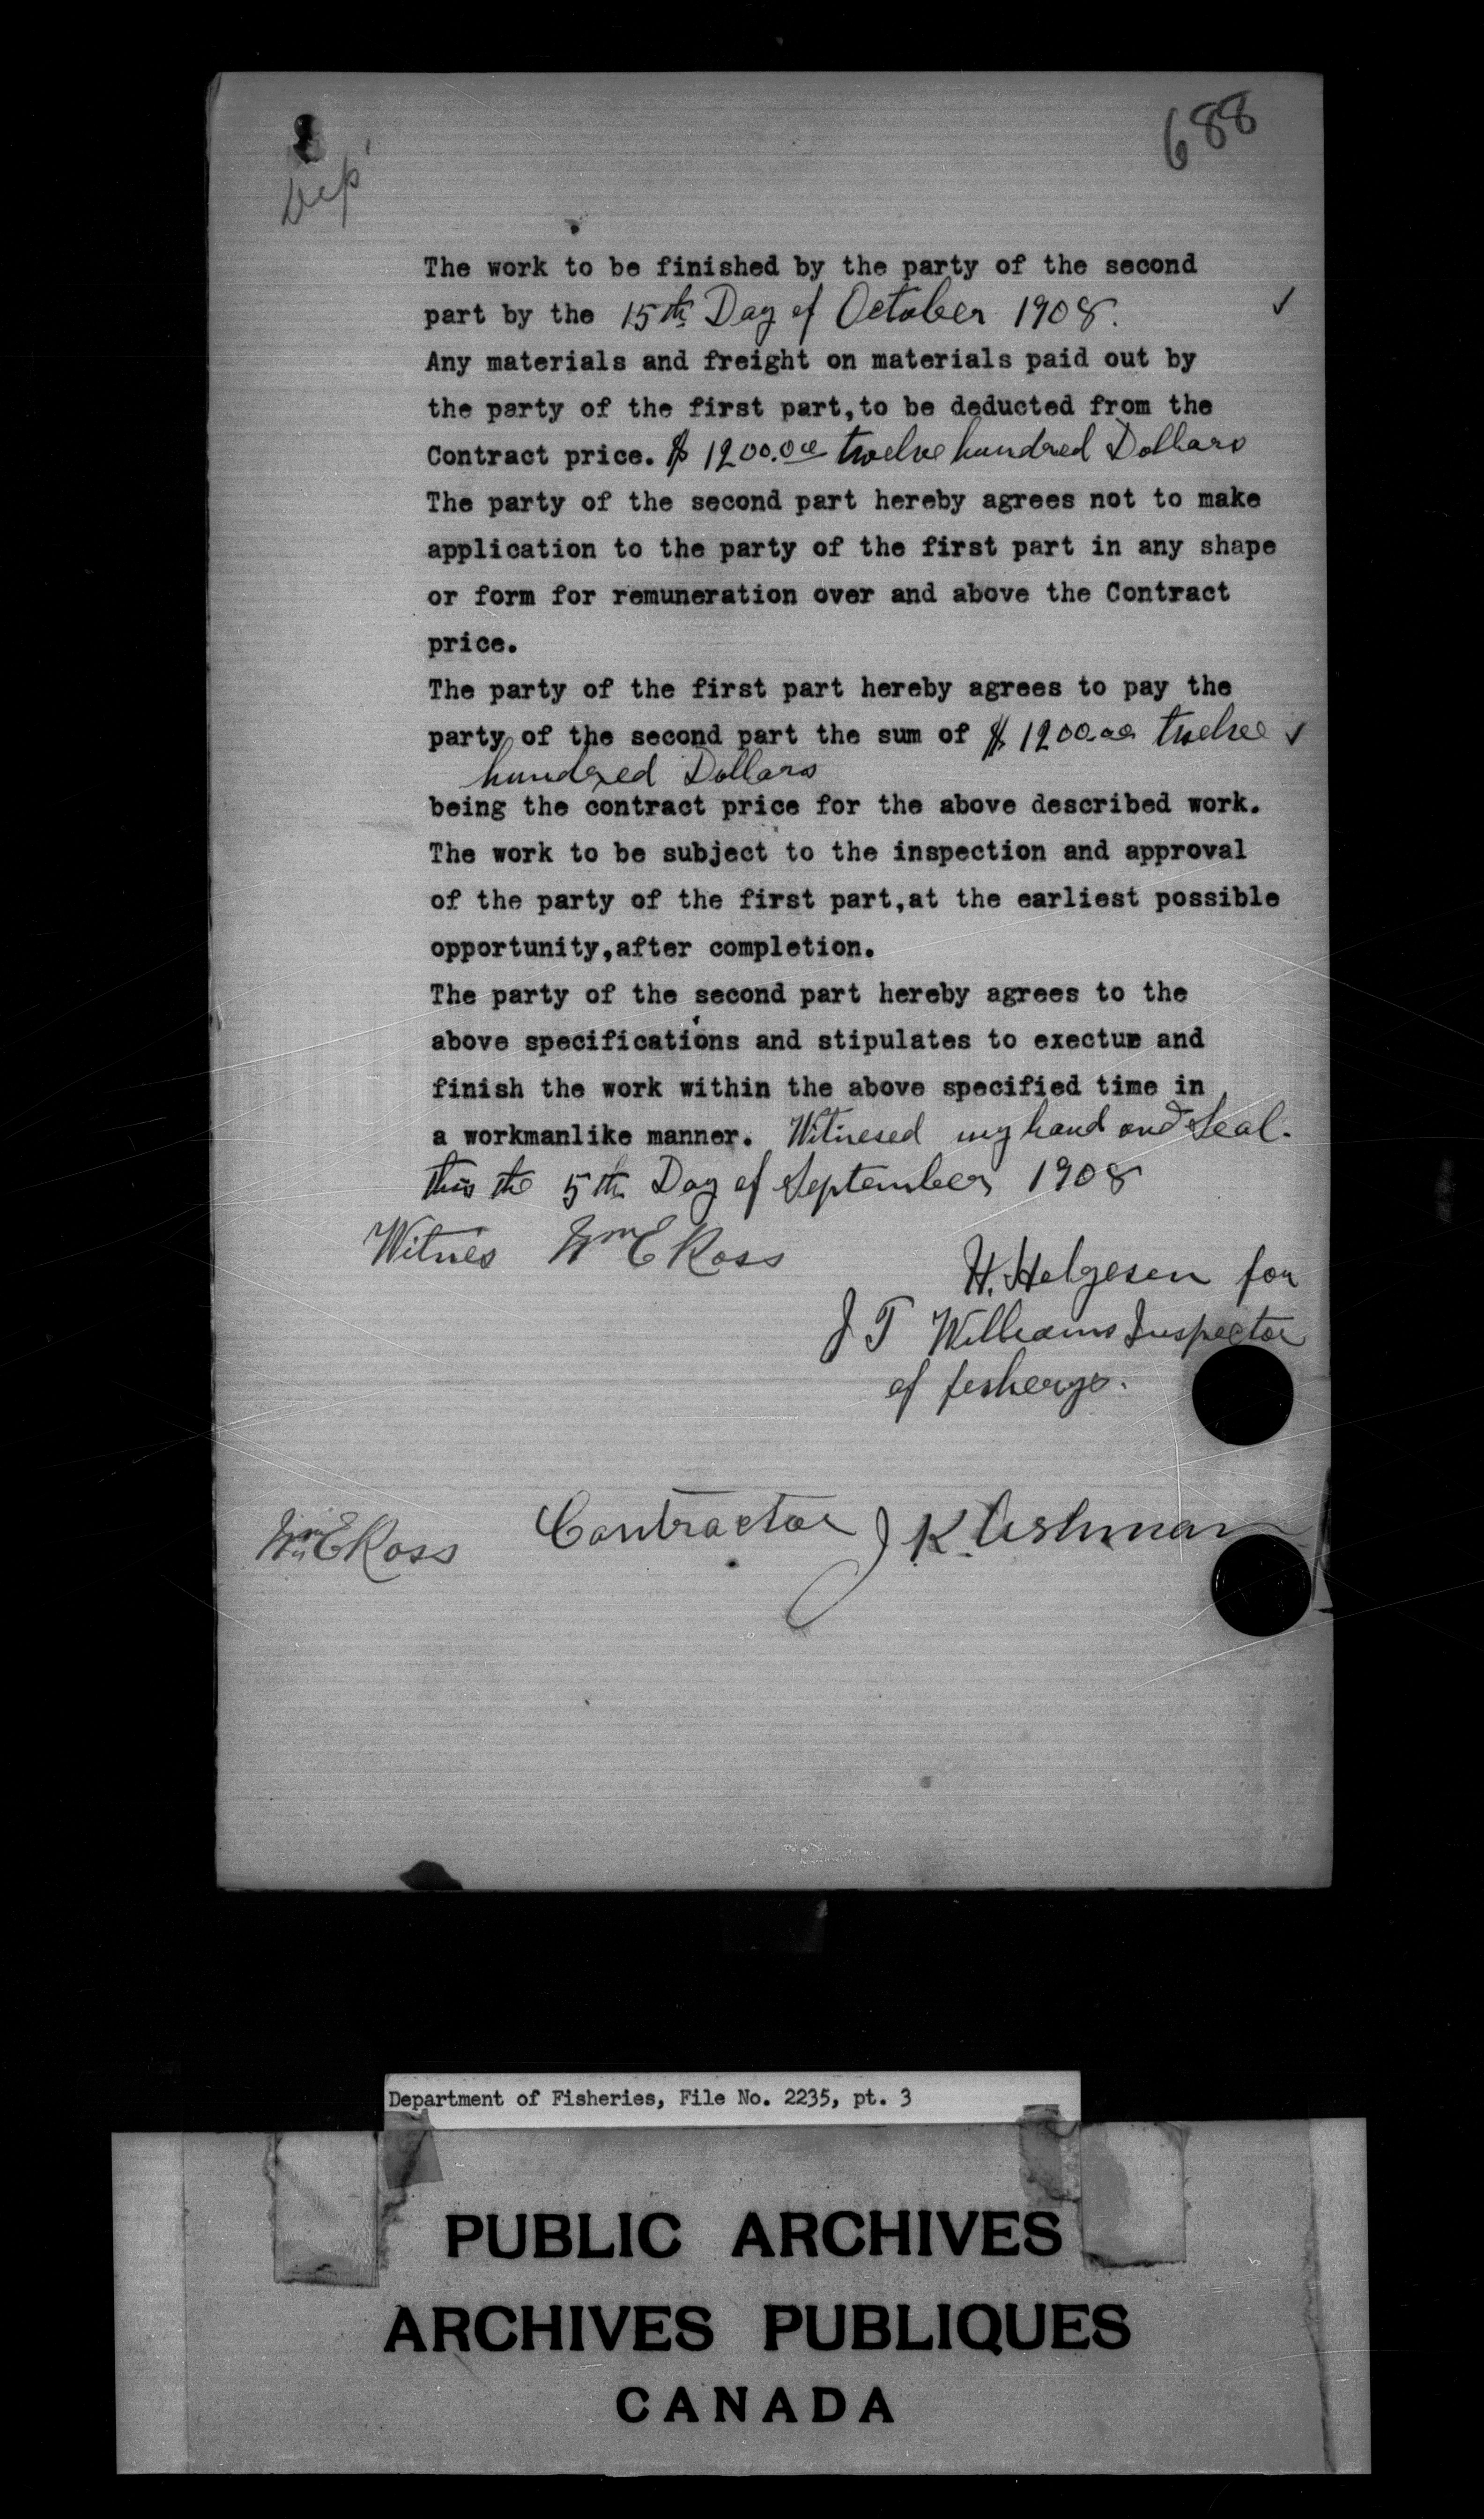 688
Dep'
The work to be finished by the party of the second
part by the 15th Day of October 1908. ✓
Any materials and freight on materials paid out by
the party of the first part,to be deducted from the
Contract price. $ 1200.00 twelve hundred Dollars
The party of the second part hereby agrees not to make
application to the party of the first part in any shape
or form for remuneration over and above the Contract
price.
The party of the first part hereby agrees to pay the
party of the second part the sum of $ 1200.00 twelve ✓
hundred Dollars
being the contract price for the above described work.
The work to be subject to the inspection and approval
of the party of the first part,at the earliest possible
opportunity,after completion.
The party of the second part hereby agrees to the
above specifications and stipulates to exectue and
finish the work within the above specified time in
a workmanlike manner. Witnesed my hand and Seal.
this the 5th Day of September 1908
Witnes Wm E Ross
H. Helgesen for
J T Williams Inspector
of fisherys.
Wm E Ross Contractor J K Ashman
Department of Fisheries, File No. 2235, pt. 3
PUBLIC ARCHIVES
ARCHIVES PUBLIQUES
CANADA